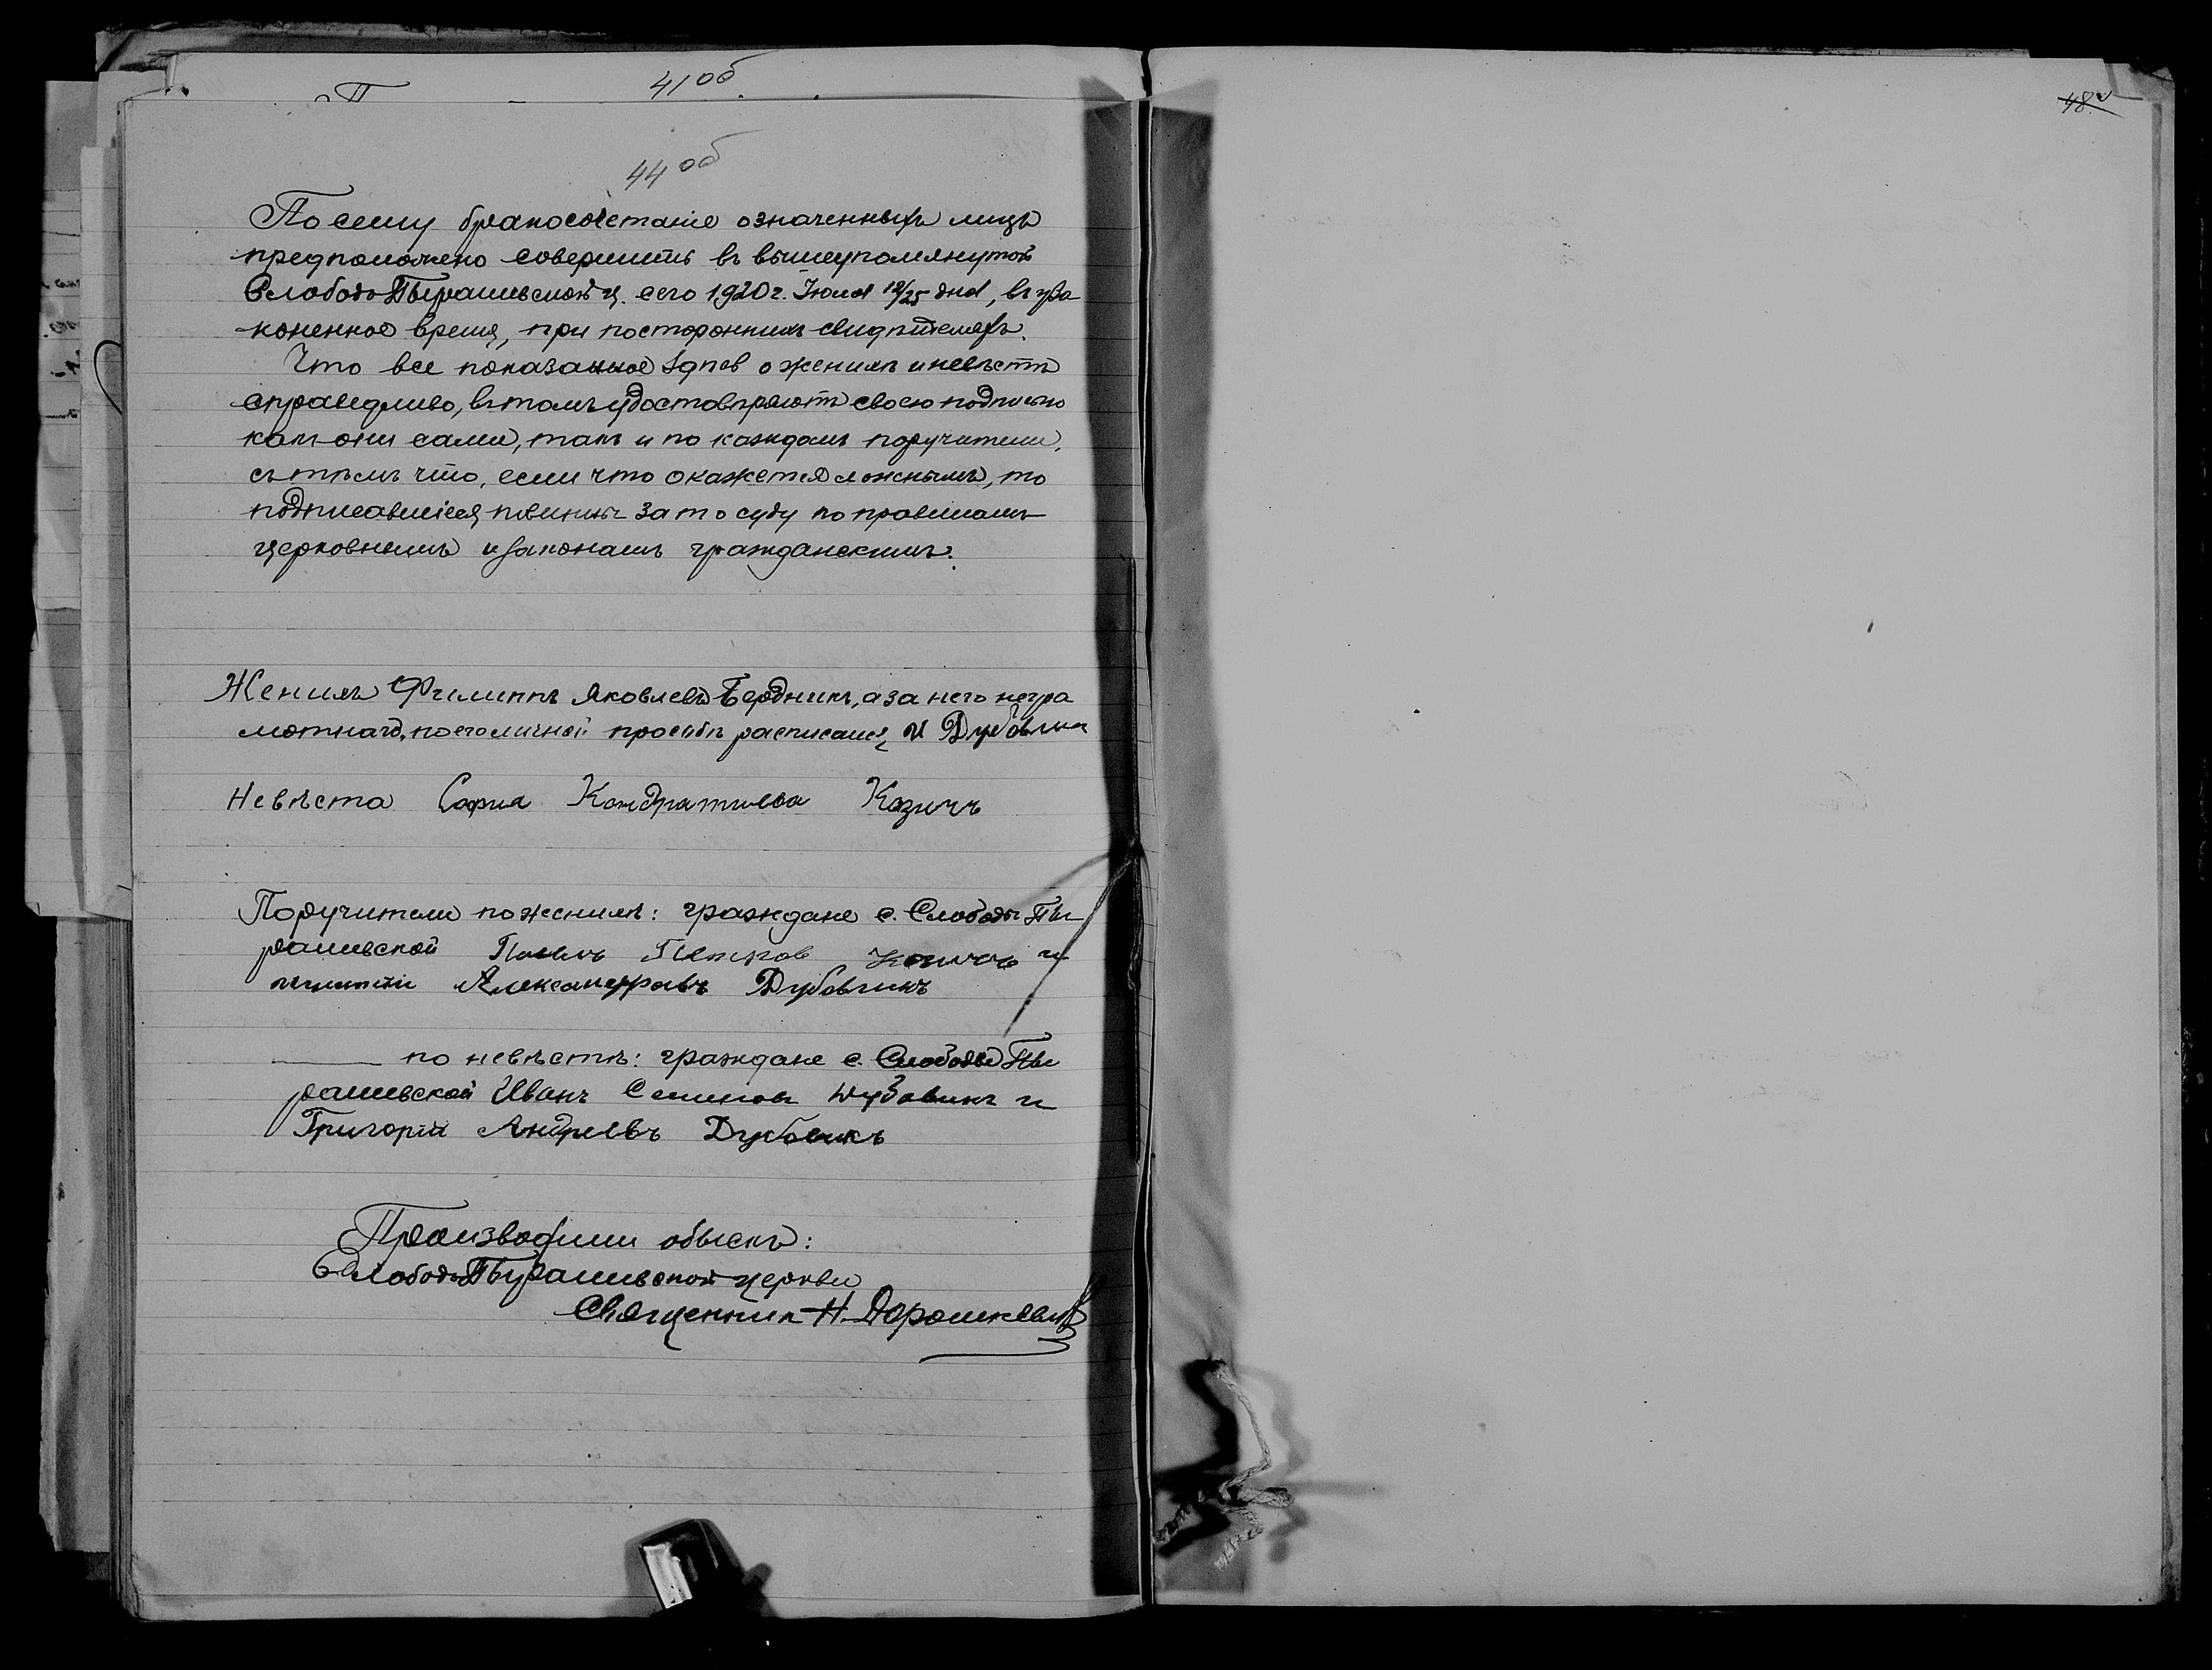 41 об
44 об
По сему бракосочетаніе означенныхъ лицъ
предположено совершить въ вышеупомянутой
Слободо-Пырашевской ц. сего 1920 г. Іюля 12/25 дня, въ уза
коненное время, при постороннихъ свидѣтеляхъ.
Что все показанное здѣсь о женихѣ и невѣстѣ
справедливо, въ томъ удостовѣряютъ своею подписью
какъ они сами, такъ и по каждомъ поручители,
съ тѣмъ что, если что окажется ложнымъ, то
подписавшіеся повинны за то суду по правиламъ
церковнымъ и законамъ гражданскимъ.
Женихъ Филиппъ Яковлевъ Бердникъ, а за него негра
мотнаго, по его личной просьбѣ расписался И Дубовикъ
Невѣста София Кондратьева Казичъ
Поручители по женихѣ: граждане с. Слободы-Пы
рашевской Петров и
Александровъ Дубовикъ
по невѣстѣ: граждане с. Слободы-Пы
рашевской Иванъ Семинов Дубовикъ и
Григорій Андреевъ Дубовикъ
Производили обыскъ:
Слободо-Пырашевской церкви
Священник Н. Дорошкевич
48